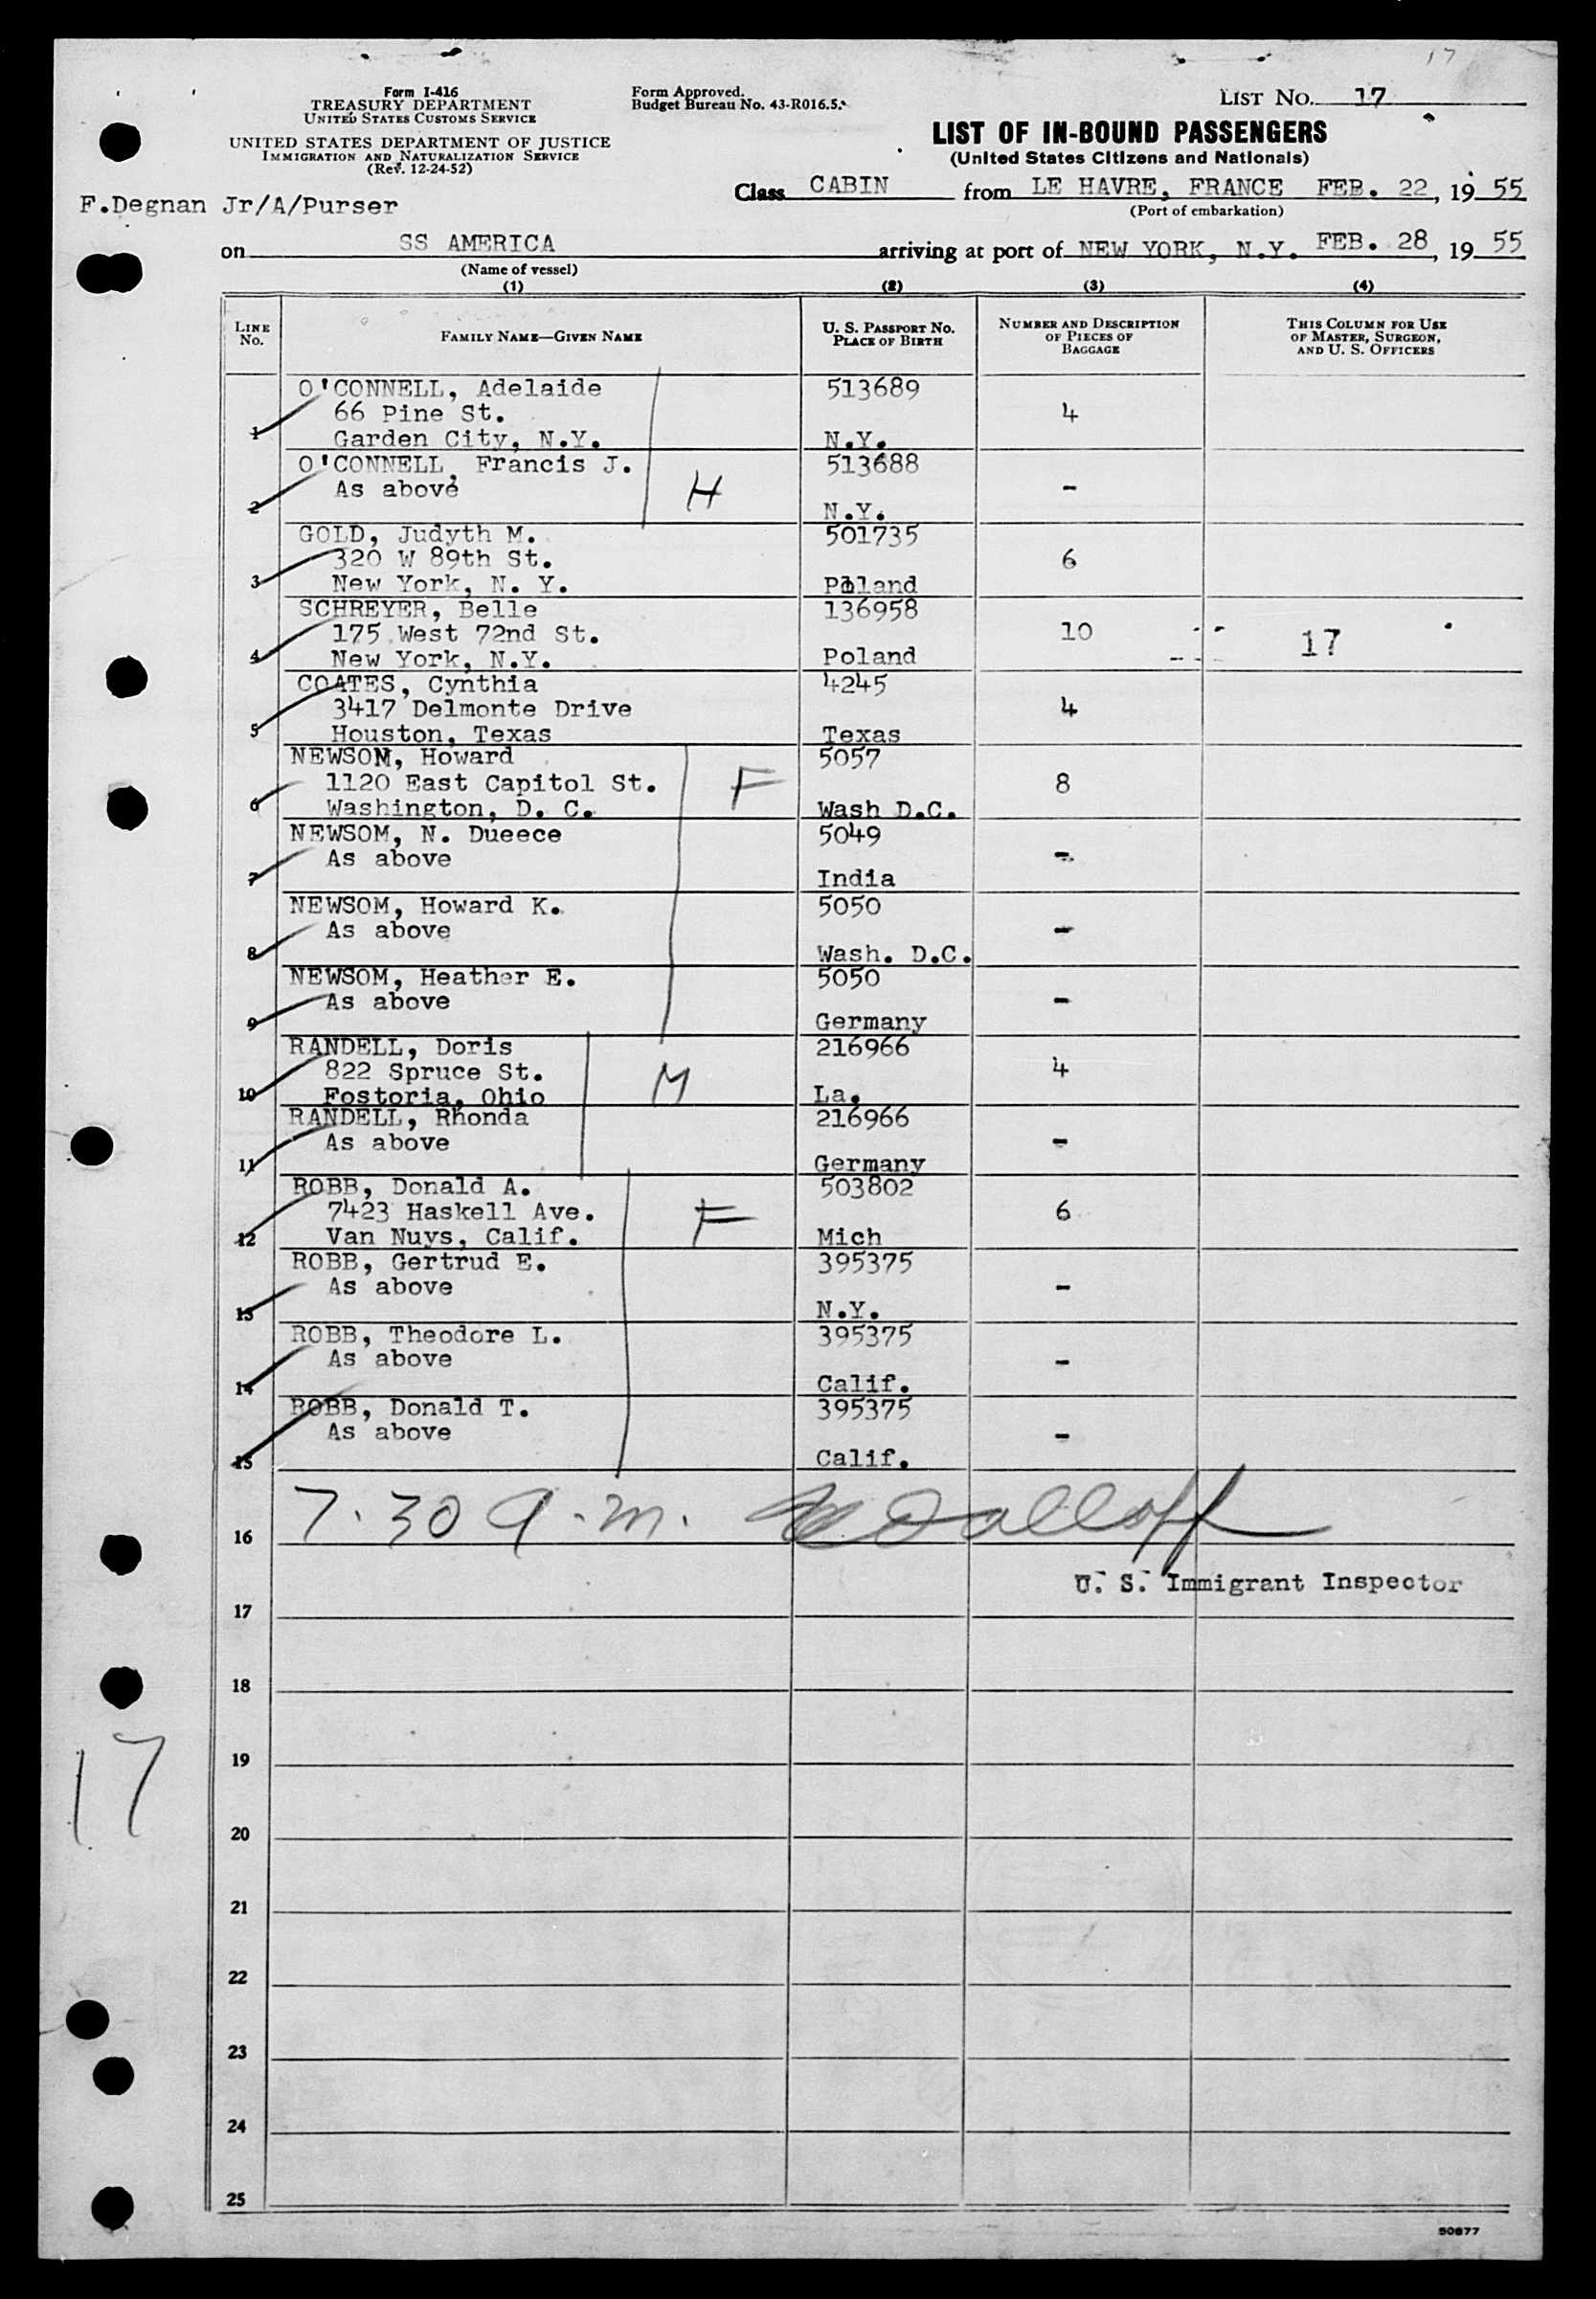 17
Form I-416
TREASURY DEPARTMENT
UNITED STATES CUSTOMS SERVICE
UNITED STATES DEPARTMENT OF JUSTICE
IMMIGRATION AND NATURALIZATION SERVICE
(Rev. 12-24-52)
Form Approved.
Budget Bureau No. 43-R016.5.
LIST NO. 17
LIST OF IN-BOUND PASSENGERS
(United States Citizens and Nationals)
Class CABIN from LE HAVRE, FRANCE FEB. 22, 19 55
(Port of embarkation)
F.Degnan Jr/A/Purser
on SS AMERICA arriving at port of NEW YORK, N.Y. FEB. 28, 19 55
(Name of vessel)
(1) (2) (3) (4)
LINE No. FAMILY NAME—GIVEN NAME U. S. PASSPORT NO. PLACE OF BIRTH NUMBER AND DESCRIPTION OF PIECES OF BAGGAGE THIS COLUMN FOR USE OF MASTER, SURGEON, AND U. S. OFFICERS
O'CONNELL, Adelaide 513689
66 Pine St. 4
1 Garden City, N.Y. N.Y.
O'CONNELL, Francis J. 513688
As above H -
2 N.Y.
GOLD, Judyth M. 501735
320 W 89th St. 6
3 New York, N. Y. Poland
SCHREYER, Belle 136958
175 West 72nd St. 10 17
4 New York, N.Y. Poland
COATES, Cynthia 4245
3417 Delmonte Drive 4
5 Houston, Texas Texas
NEWSOM, Howard 5057
1120 East Capitol St. F 8
6 Washington, D. C. Wash D.C.
NEWSOM, N. Dueece 5049
As above -
7 India
NEWSOM, Howard K. 5050
As above -
8 Wash. D.C.
NEWSOM, Heather E. 5050
As above -
9 Germany
RANDELL, Doris 216966
822 Spruce St. M 4
10 Fostoria, Ohio La.
RANDELL, Rhonda 216966
As above -
11 Germany
ROBB, Donald A. 503802
7423 Haskell Ave. F 6
12 Van Nuys, Calif. Mich
ROBB, Gertrud E. 395375
As above -
13 N.Y.
ROBB, Theodore L. 395375
As above -
14 Calif.
ROBB, Donald T. 395375
As above -
15 Calif.
16 7.30 a.m.
U. S. Immigrant Inspector
17
18
19
17
20
21
22
23
24
25
50877